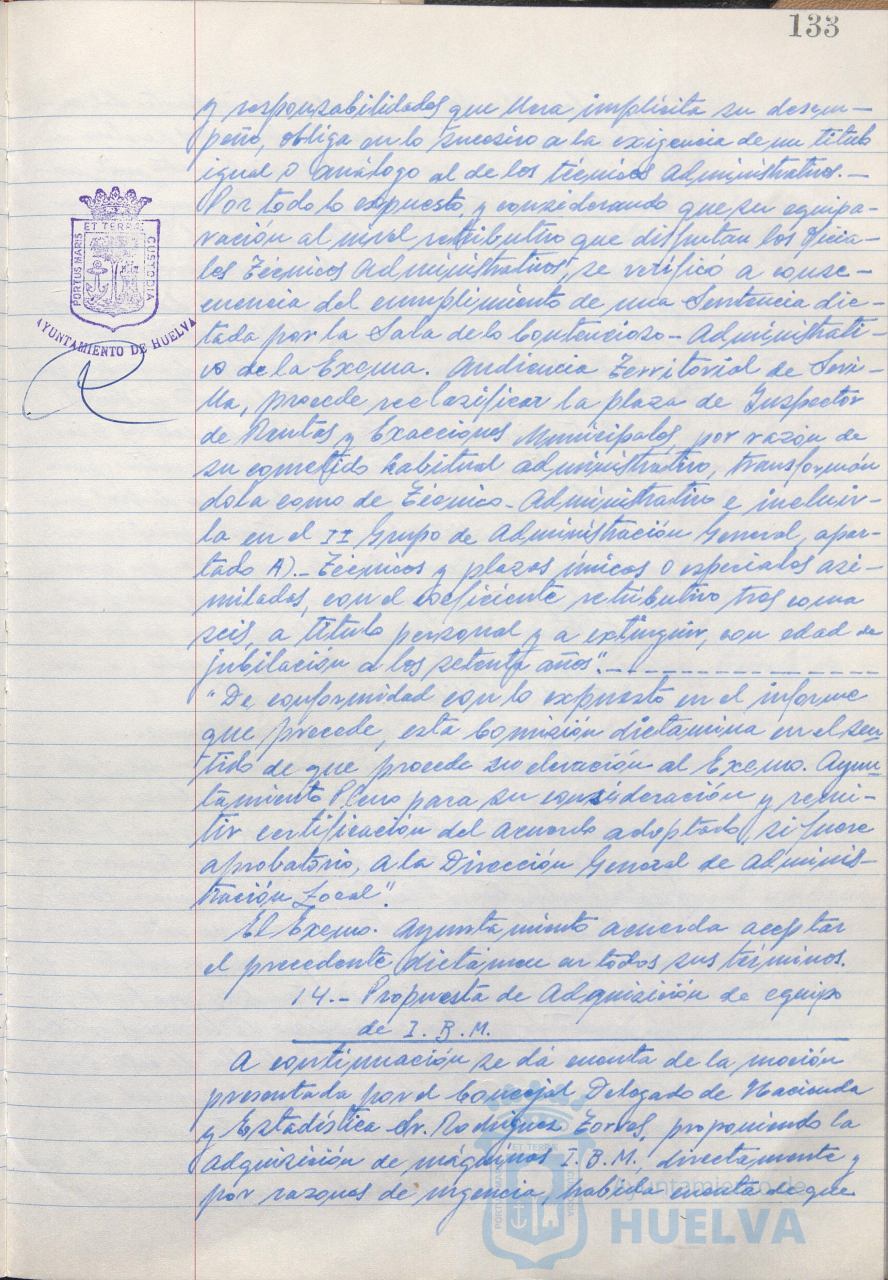 133
y responsabilidades que lleva implícita su desem-
peño, obliga en lo sucesivo a la exigencia de un título
igual o análogo al de los técnicos administrativos.—
Por todo lo expuesto, y considerando que su equipa-
ración al nivel retributivo que disfrutan los Oficia-
les Técnicos Administrativos, se verificó a conse-
cuencia del cumplimiento de una Sentencia dic-
tada por la Sala de lo Contencioso-Administrati-
vo de la Excma. Audiencia Territorial de Sevi-
lla, procede reclasificar la plaza de Inspector
de Rentas y Exacciones Municipales, por razón de
su cometido habitual administrativo, transformán
dola como de Técnico-Administrativo e incluir-
la en el II Grupo de Administración General, apar-
tado A).- Técnicos y plazas únicas o especiales asi-
miladas, con el coeficiente retributivo tres coma
seis, a título personal y a extinguir, con edad de
jubilación a los setenta años".-
"De conformidad con lo expuesto en el informe
que precede, esta Comisión dictamina en el sen
tido de que procede su elevación al Excmo. Ayun
tamiento Pleno para su consideración y remi-
tir certificación del acuerdo adoptado, si fuere
aprobatorio, a la Dirección General de Adminis-
tración Local".
El Excmo. Ayuntamiento acuerda aceptar
el precedente dictamen en todos sus términos.
14.- Propuesta de Adquisición de equipo
de I.B.M.
A continuación se dá cuenta de la moción
presentada por el Concejal Delegado de Hacienda
y Estadística Sr. Rodríguez Torres, proponiendo la
adquisición de máquinas I.B.M., directamente y
por razones de urgencia, habida cuenta de que
ET TERRAE
PORTUS MARIS
CUSTODIA
AYUNTAMIENTO DE HUELVA
ET TERRAE
PORTUS MARIS
CUSTODIA
Ayuntamiento de
HUELVA